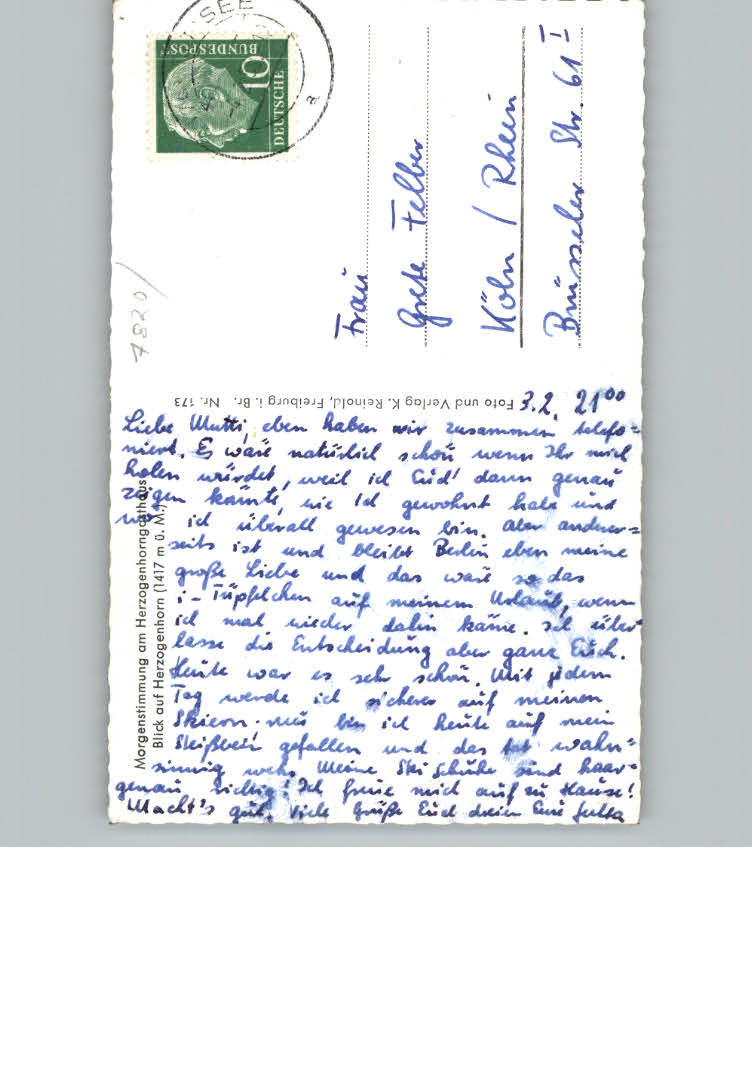 SEE
BUNDESPOST
10
DEUTSCHE
a
7820/
Frau
Grete Felber
Köln / Rhein
Brüsseler Str. 61 I
Foto und Verlag K. Reinold, Freiburg i. Br. Nr. 173
Morgenstimmung am Herzogenhorngasthaus
Blick auf Herzogenhorn (1417 m ü. M.)
3.2. 21⁰⁰
Liebe Mutti, eben haben wir zusammen telefo=
niert. Es wäre natürlich schön wenn Ihr mich
holen würdet, weil ich Euch dann genau
zeigen könnte, wie ich gewohnt habe und
wo ich überall gewesen bin. Aber anderer=
seits ist und bleibt Berlin eben meine
große Liebe und das wäre so das
i-Tüpfelchen auf meinem Urlaub, wenn
ich mal wieder dahin käme. Ich über
lasse die Entscheidung aber ganz Euch.
Heute war es sehr schön. Mit jedem
Tag werde ich sicherer auf meinen
Skiern. Nur bin ich heute auf mein
Steißbein gefallen und das tat wahn=
sinnig weh. Meine Ski Schuhe sind haar=
genau richtig! Ich freue mich auf zu Hause!
Macht's gut, viele Grüße Euch dreien Eure Jutta